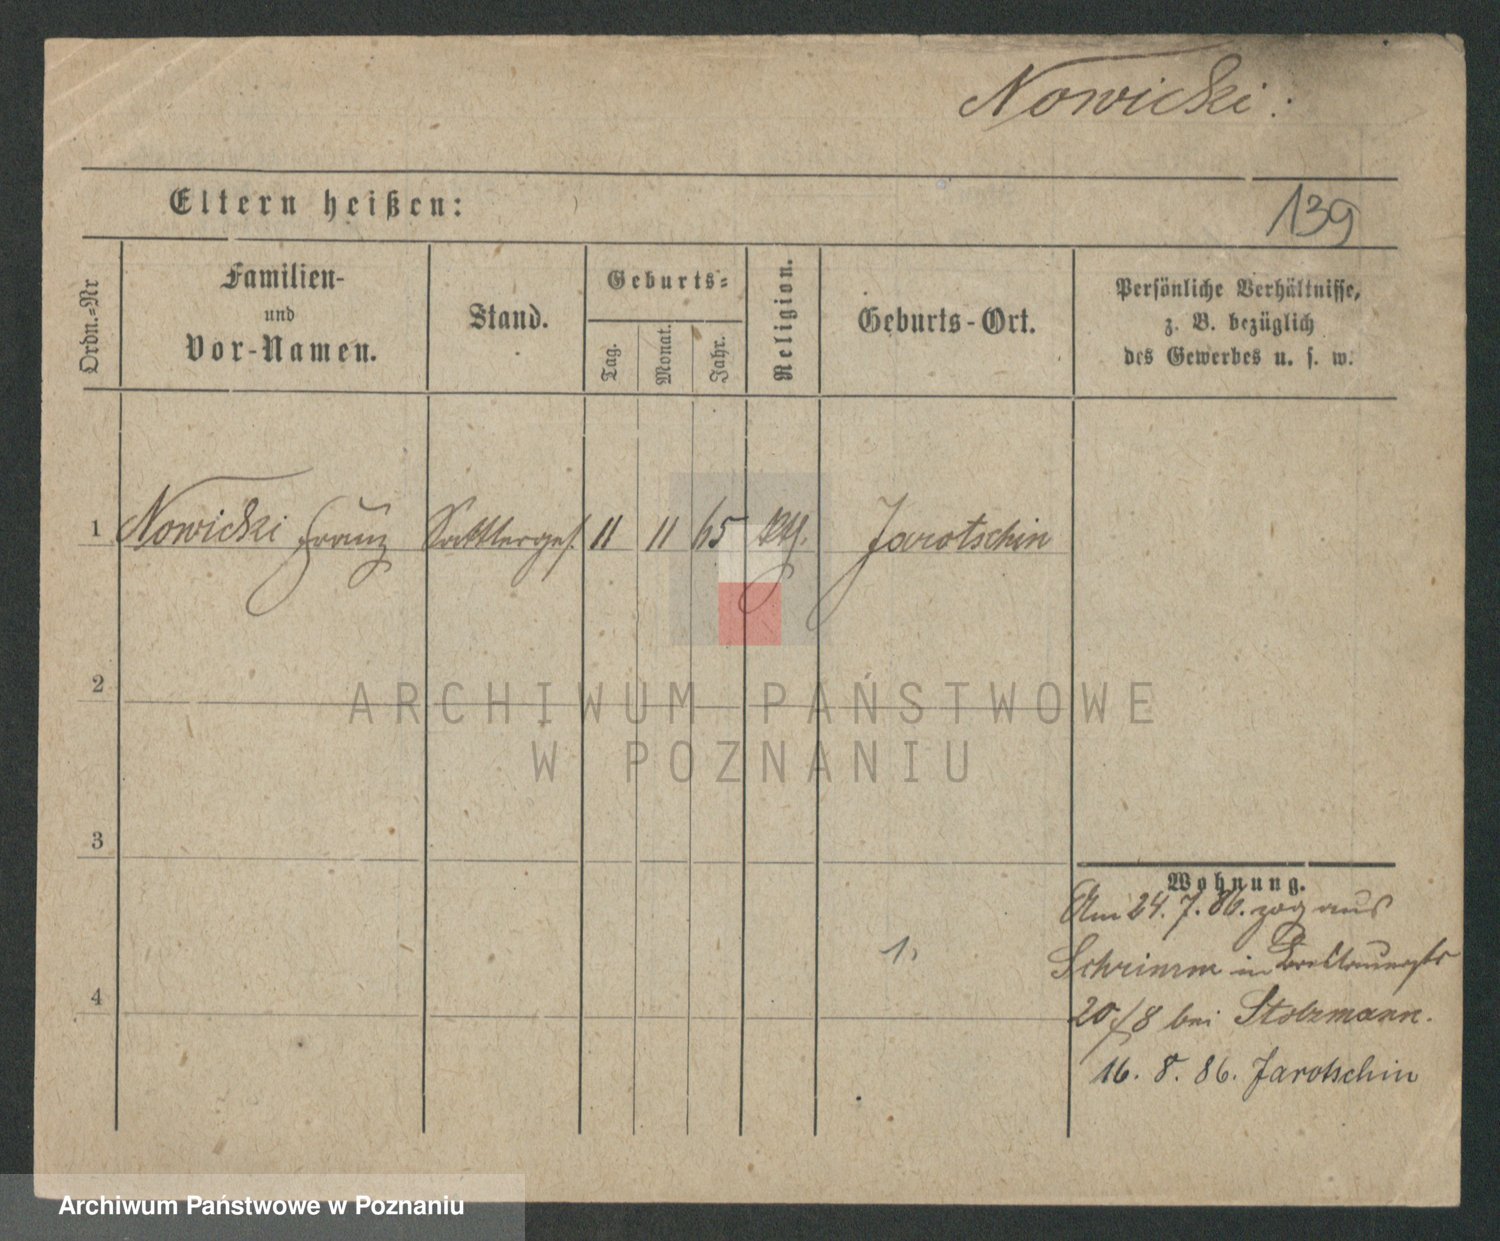 Nowicki.
Eltern heißen:
139
Ordn.-Nr
Familien-
und
Vor-Namen.
Stand.
Geburts-
Tag.
Monat.
Jahr.
Religion.
Geburts-Ort.
Persönliche Verhältnisse,
z. B. bezüglich
des Gewerbes u. s. w.
1 Nowicki Franz Sattlerges. 11 11 65 kth. Jarotschin
2
3
4
1.
Wohnung.
Am 24. 7. 86. zog aus
Schrimm in
20/8 bei Stolzmann.
16. 8. 86. Jarotschin
ARCHIWUM PAŃSTWOWE
W POZNANIU
Archiwum Państwowe w Poznaniu